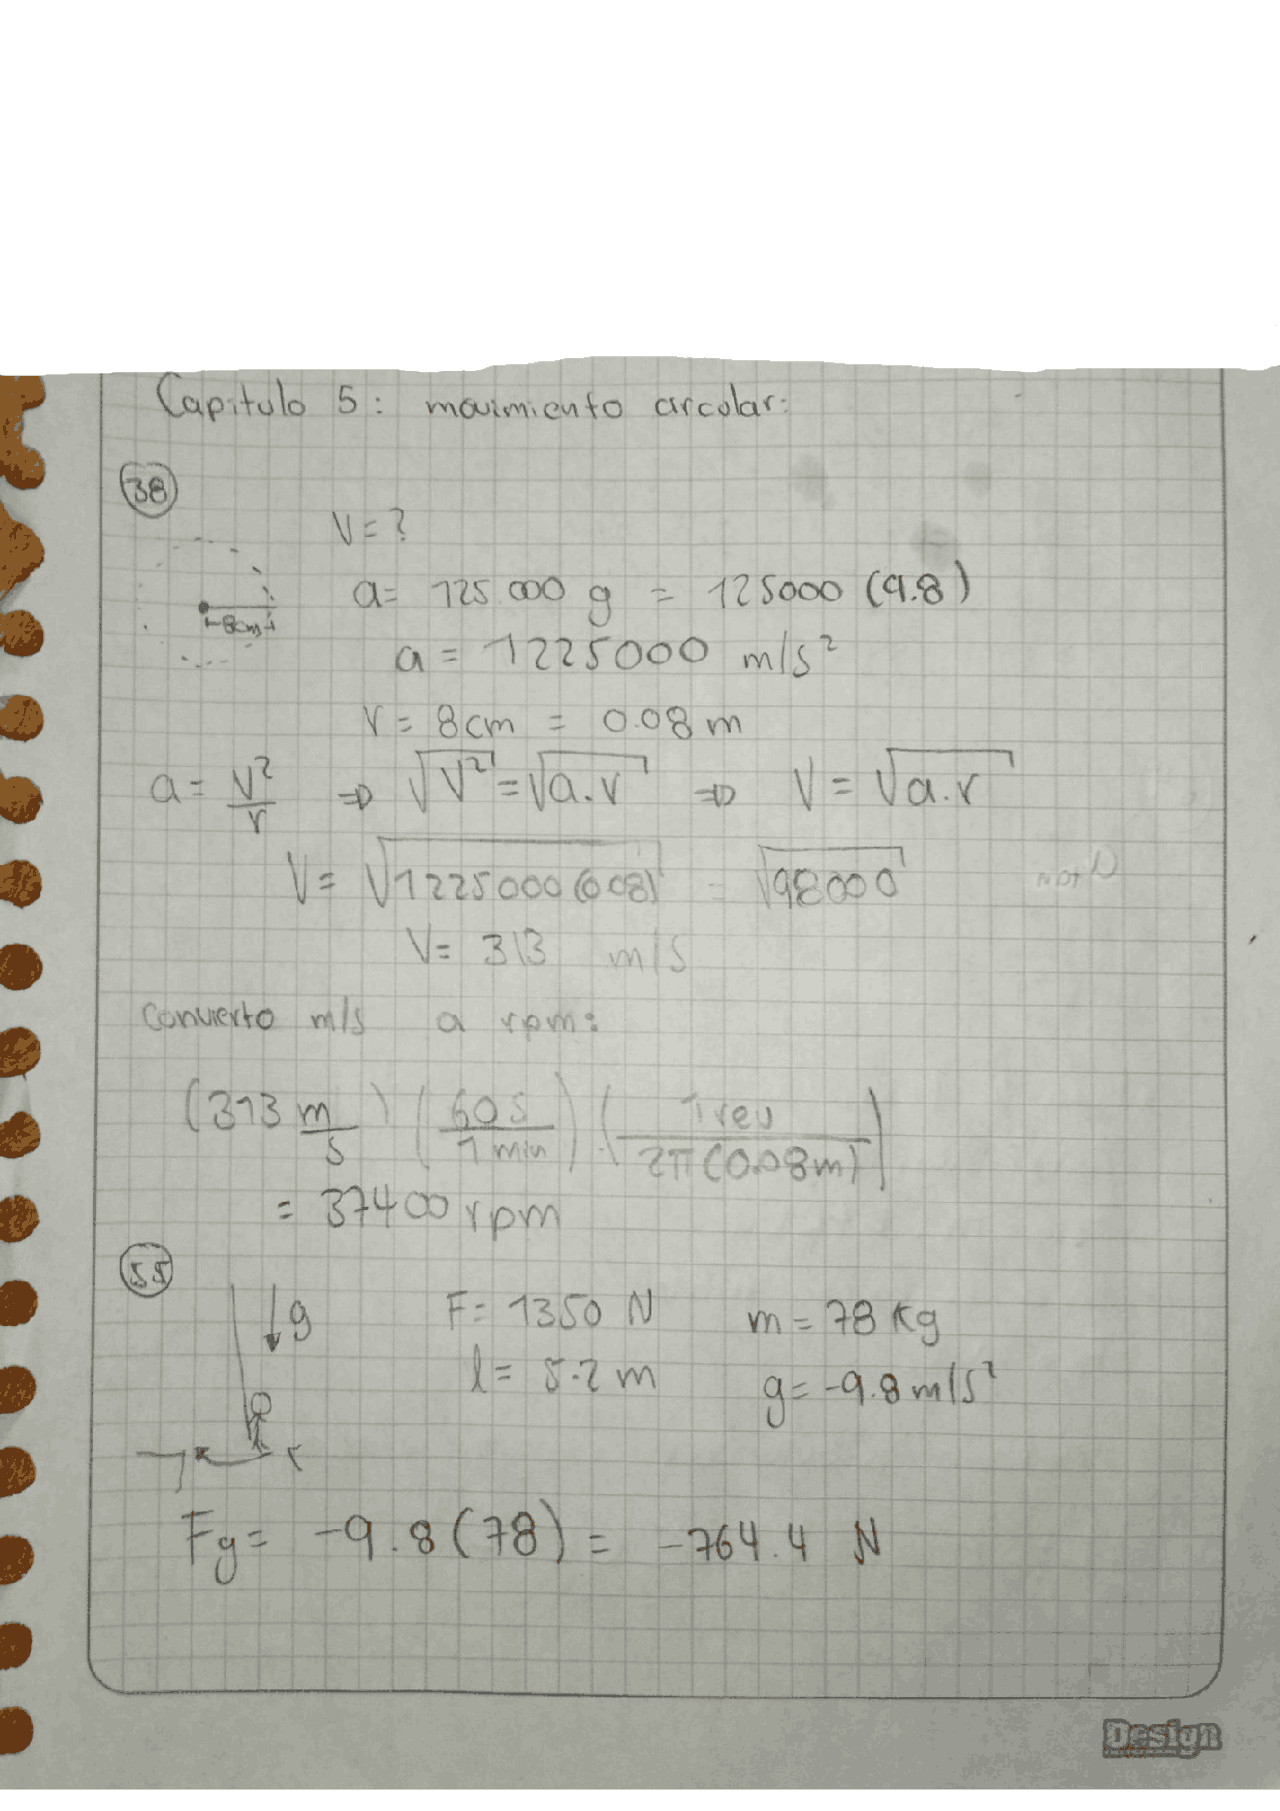 Capitulo 5: movimiento circular:
38
V = ?
a = 125.000 g = 125000 (9.8)
8cm
a = 1225000 m/s²
r = 8cm = 0.08 m
a = V²/r ⇒ √V² = √a.r ⇒ V = √a.r
V = √1225000(0.08) = √98000
V = 313 m/s
Convierto m/s a rpm:
(313 m/s) (60 s/1 min) (1 rev/2π(0.08m))
= 37400 rpm
55
g F = 1350 N m = 78 Kg
l = 5.2 m g = -9.8 m/s²
Fg = -9.8(78) = -764.4 N
Design